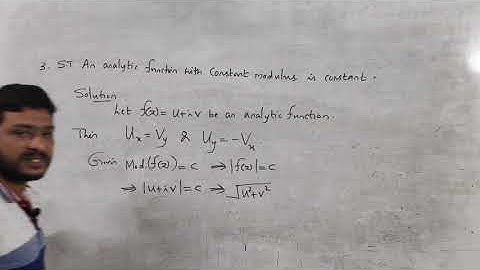 3. S.T An analytic function with Constant modulus is constant.
Solution
Let f(z) = u+iv be an analytic function.
Then Ux = Vy & Uy = -Vx
Given Mod.(f(z)) = c ⇒ |f(z)| = c
⇒ |u+iv| = c ⇒ √u²+v²